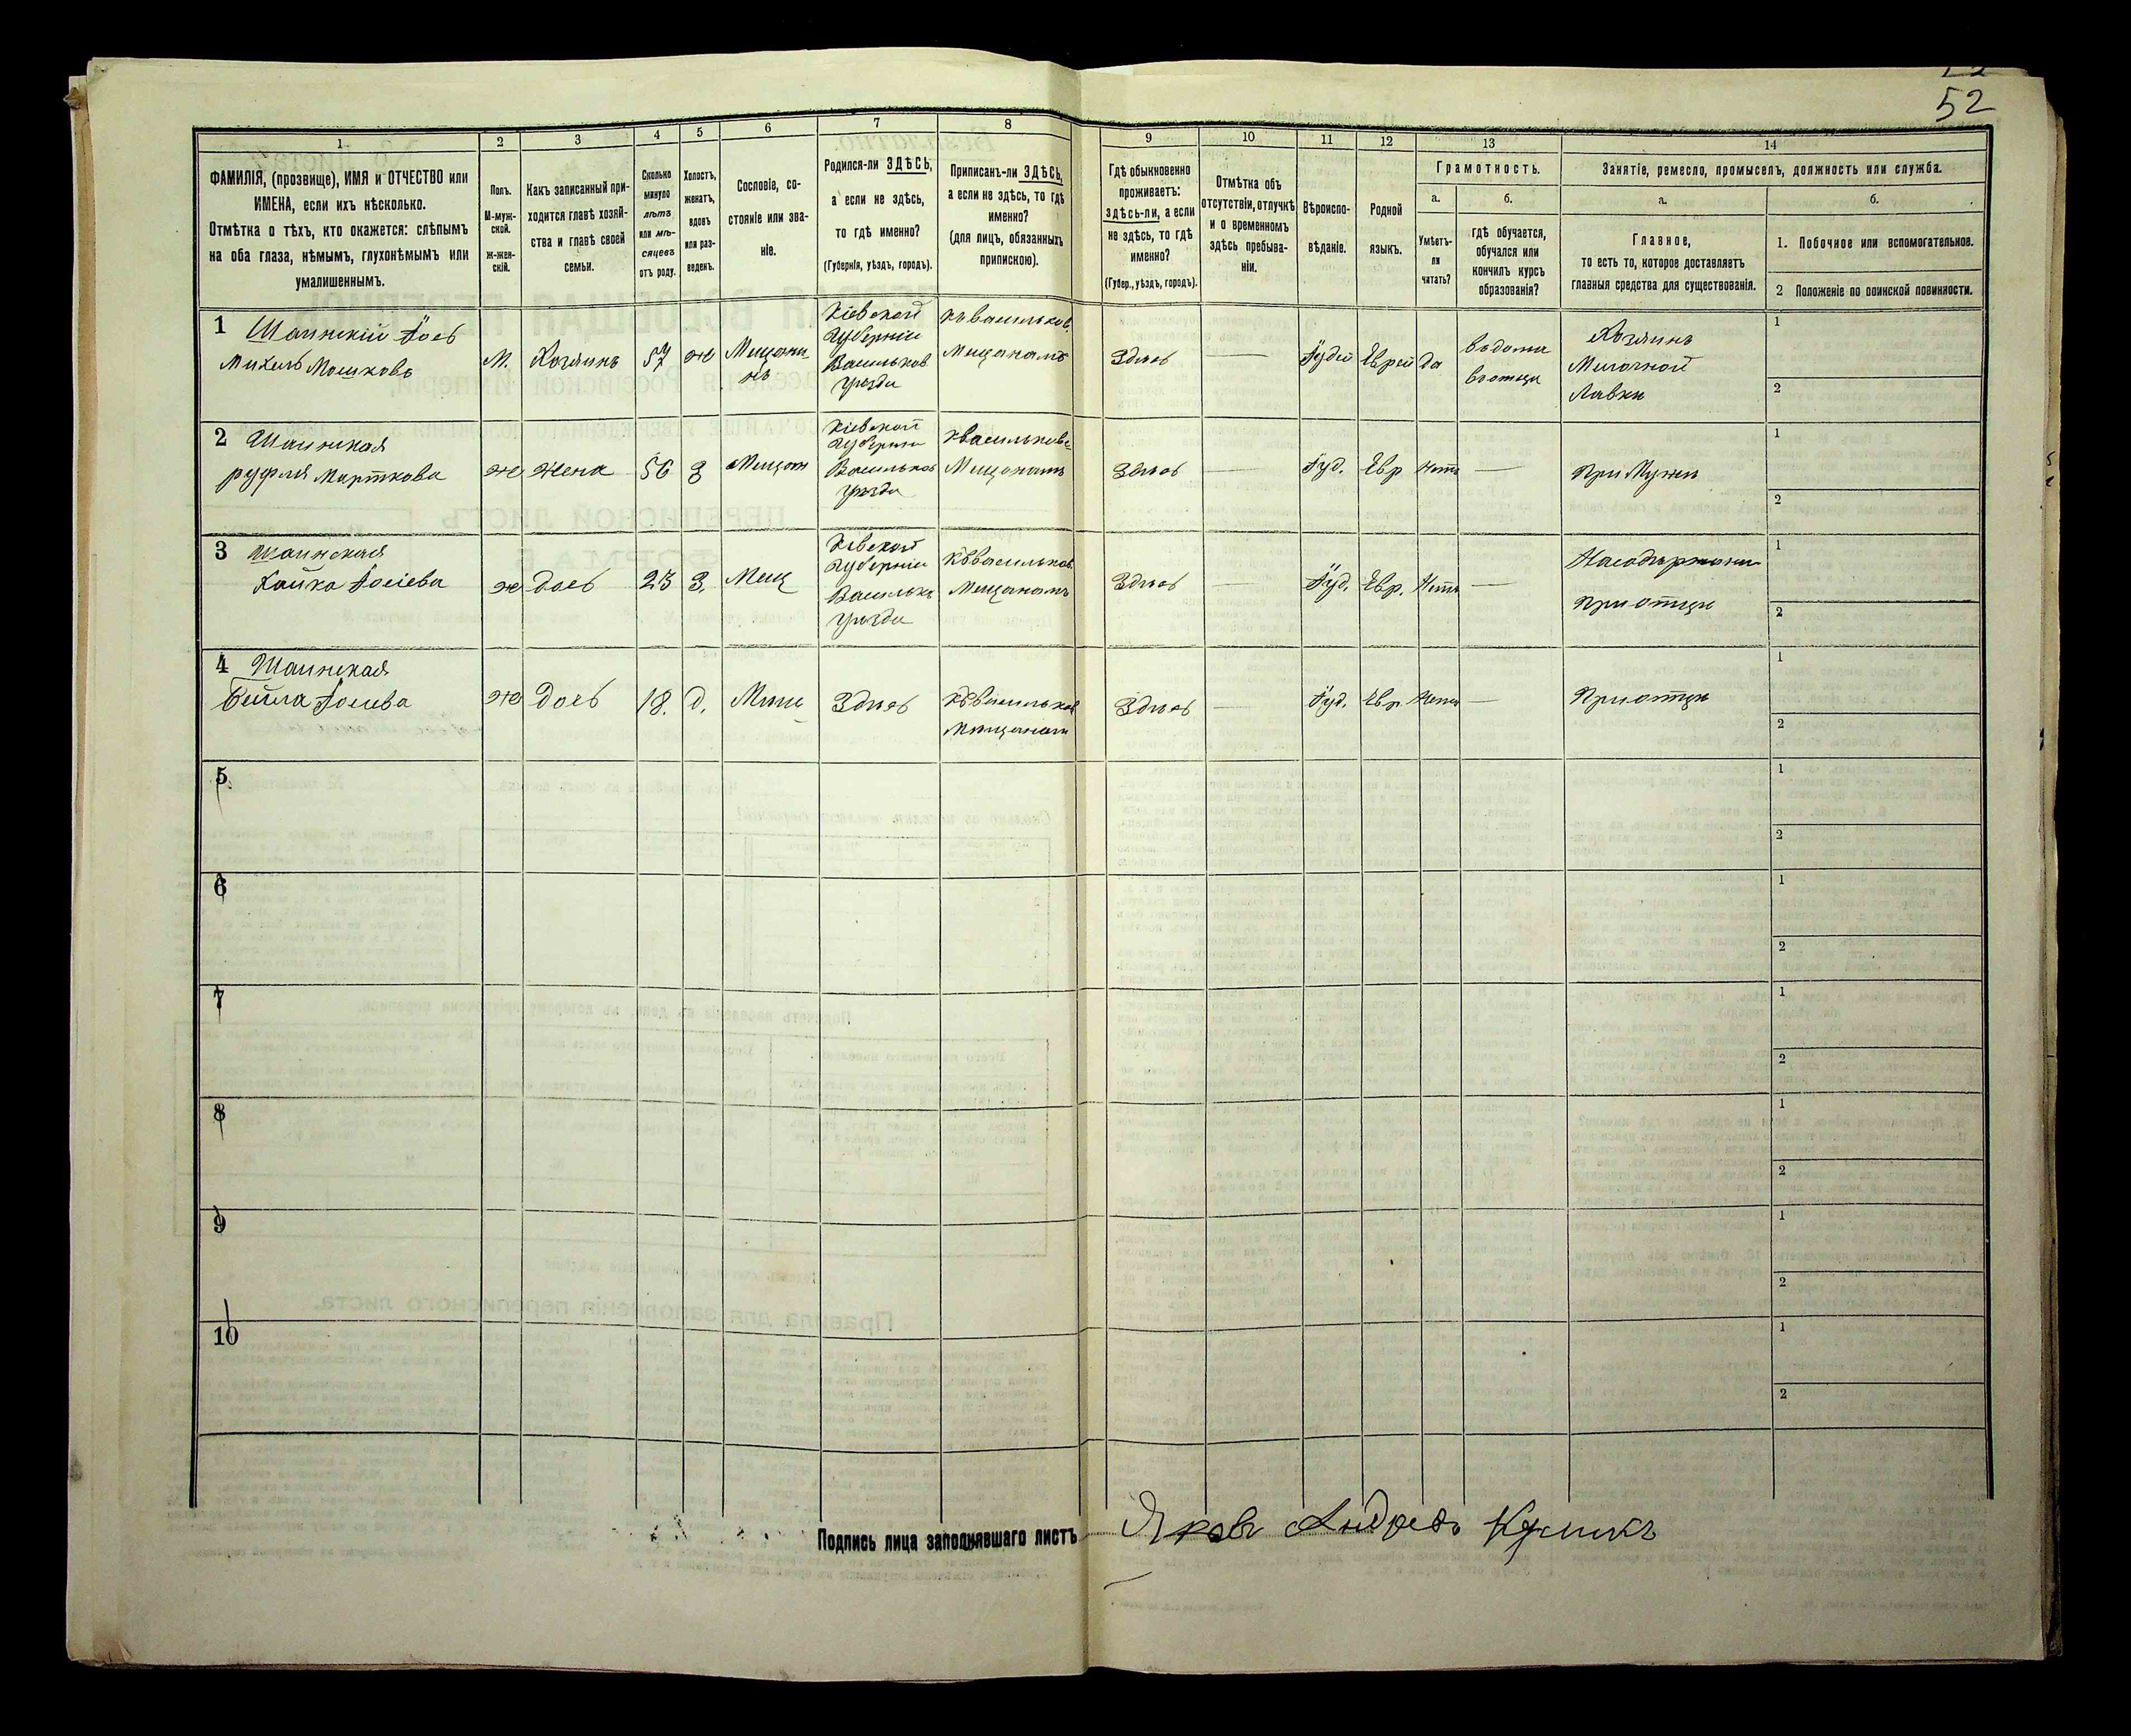 52
1
2
3
4
5
6
7
8
9
10
11
12
13
14
ФАМИЛІЯ, (прозвище), ИМЯ и ОТЧЕСТВО или
ИМЕНА, если ихъ нѣсколько.
Отмѣтка о тѣхъ, кто окажется: слѣпымъ
на оба глаза, нѣмымъ, глухонѣмымъ или
умалишеннымъ.
Полъ.
М-муж-
ской.
Ж-жен-
скій.
Какъ записанный при-
ходится главѣ хозяй-
ства и главѣ своей
семьи.
Сколько
минуло
лѣтъ
или мѣ-
сяцевъ
отъ роду.
Холостъ,
женатъ,
вдовъ
или раз-
веденъ.
Сословіе, со-
стояніе или зва-
ніе.
Родился-ли ЗДѢСЬ,
а если не здѣсь,
то гдѣ именно?
(Губернія, уѣздъ, городъ).
Приписанъ-ли ЗДѢСЬ,
а если не здѣсь, то гдѣ
именно?
(для лицъ, обязанныхъ
припискою).
Гдѣ обыкновенно
проживаетъ:
здѣсь-ли, а если
не здѣсь, то гдѣ
именно?
(Губер., уѣздъ, городъ).
Отмѣтка объ
отсутствіи, отлучкѣ
и о временномъ
здѣсь пребыва-
ніи.
Вѣроиспо-
вѣданіе.
Родной
языкъ.
Грамотность.
а.
Умѣетъ-
ли
читать?
б.
гдѣ обучается,
обучался или
кончилъ курсъ
образованія?
Занятіе, ремесло, промыселъ, должность или служба.
а.
Главное,
то есть то, которое доставляетъ
главныя средства для существованія.
б.
1. Побочное или вспомогательное.
2 Положеніе по воинской повинности.
1 Шаинскій Іось
Михель Мошковъ
М.
Хозяинъ
57
ж
Мищани
нъ
Кіевской
Губерніи
Васильков
уѣзда
къ Васильков.
Мищанамъ
Здѣсь
Іудей
Еврей
да
въ дома
въ отца
Хозяинъ
Милочной
Лавки
1
2
2 Шаинская
Марткова
ж
жена
56
З
Мищан
Кіевской
Губерніи
Васильков
уѣзда
Мищанамъ
Здѣсь
Іуд.
Евр
Нетъ
При Мужи
1
2
3 Шаинская
Хайка Іосіева
ж
дось
23
З.
Мещ
Кіевской
Губерніи
уѣзда
къ Васильков
Мещанамъ
Здѣсь
Іуд.
Евр.
Нетъ
При отци
1
2
4 Шаинская
Бейла Іосіева
ж
дось
18.
д.
Здѣсь
къ Васильков
Мищанам
Здѣсь
Іуд.
Евр
Нетъ
При отци
1
2
5
1
2
6
1
2
7
1
2
8
1
2
9
1
2
10
1
2
Подпись лица заполнявшаго листъ